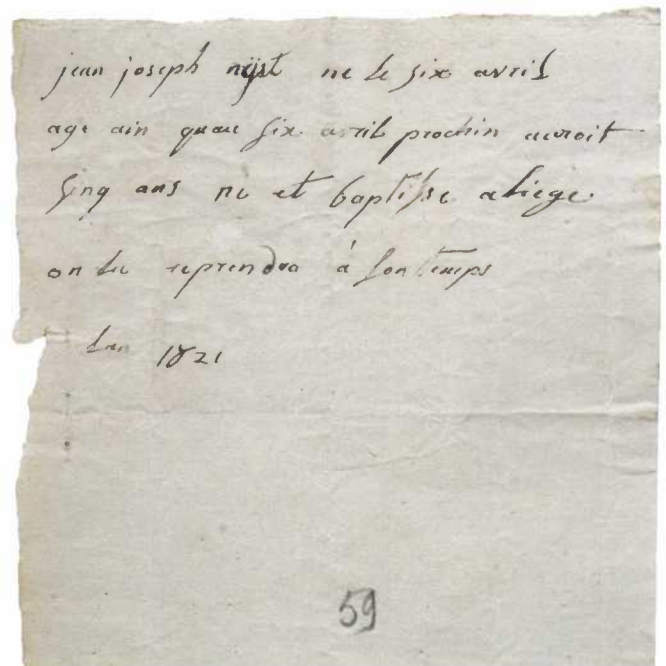 jean joseph nijst ne le six avril
age ain quau six avril prochin auroit
sinq ans ne et baptisse a liege
on le reprendra à son temps
lan 1821
59